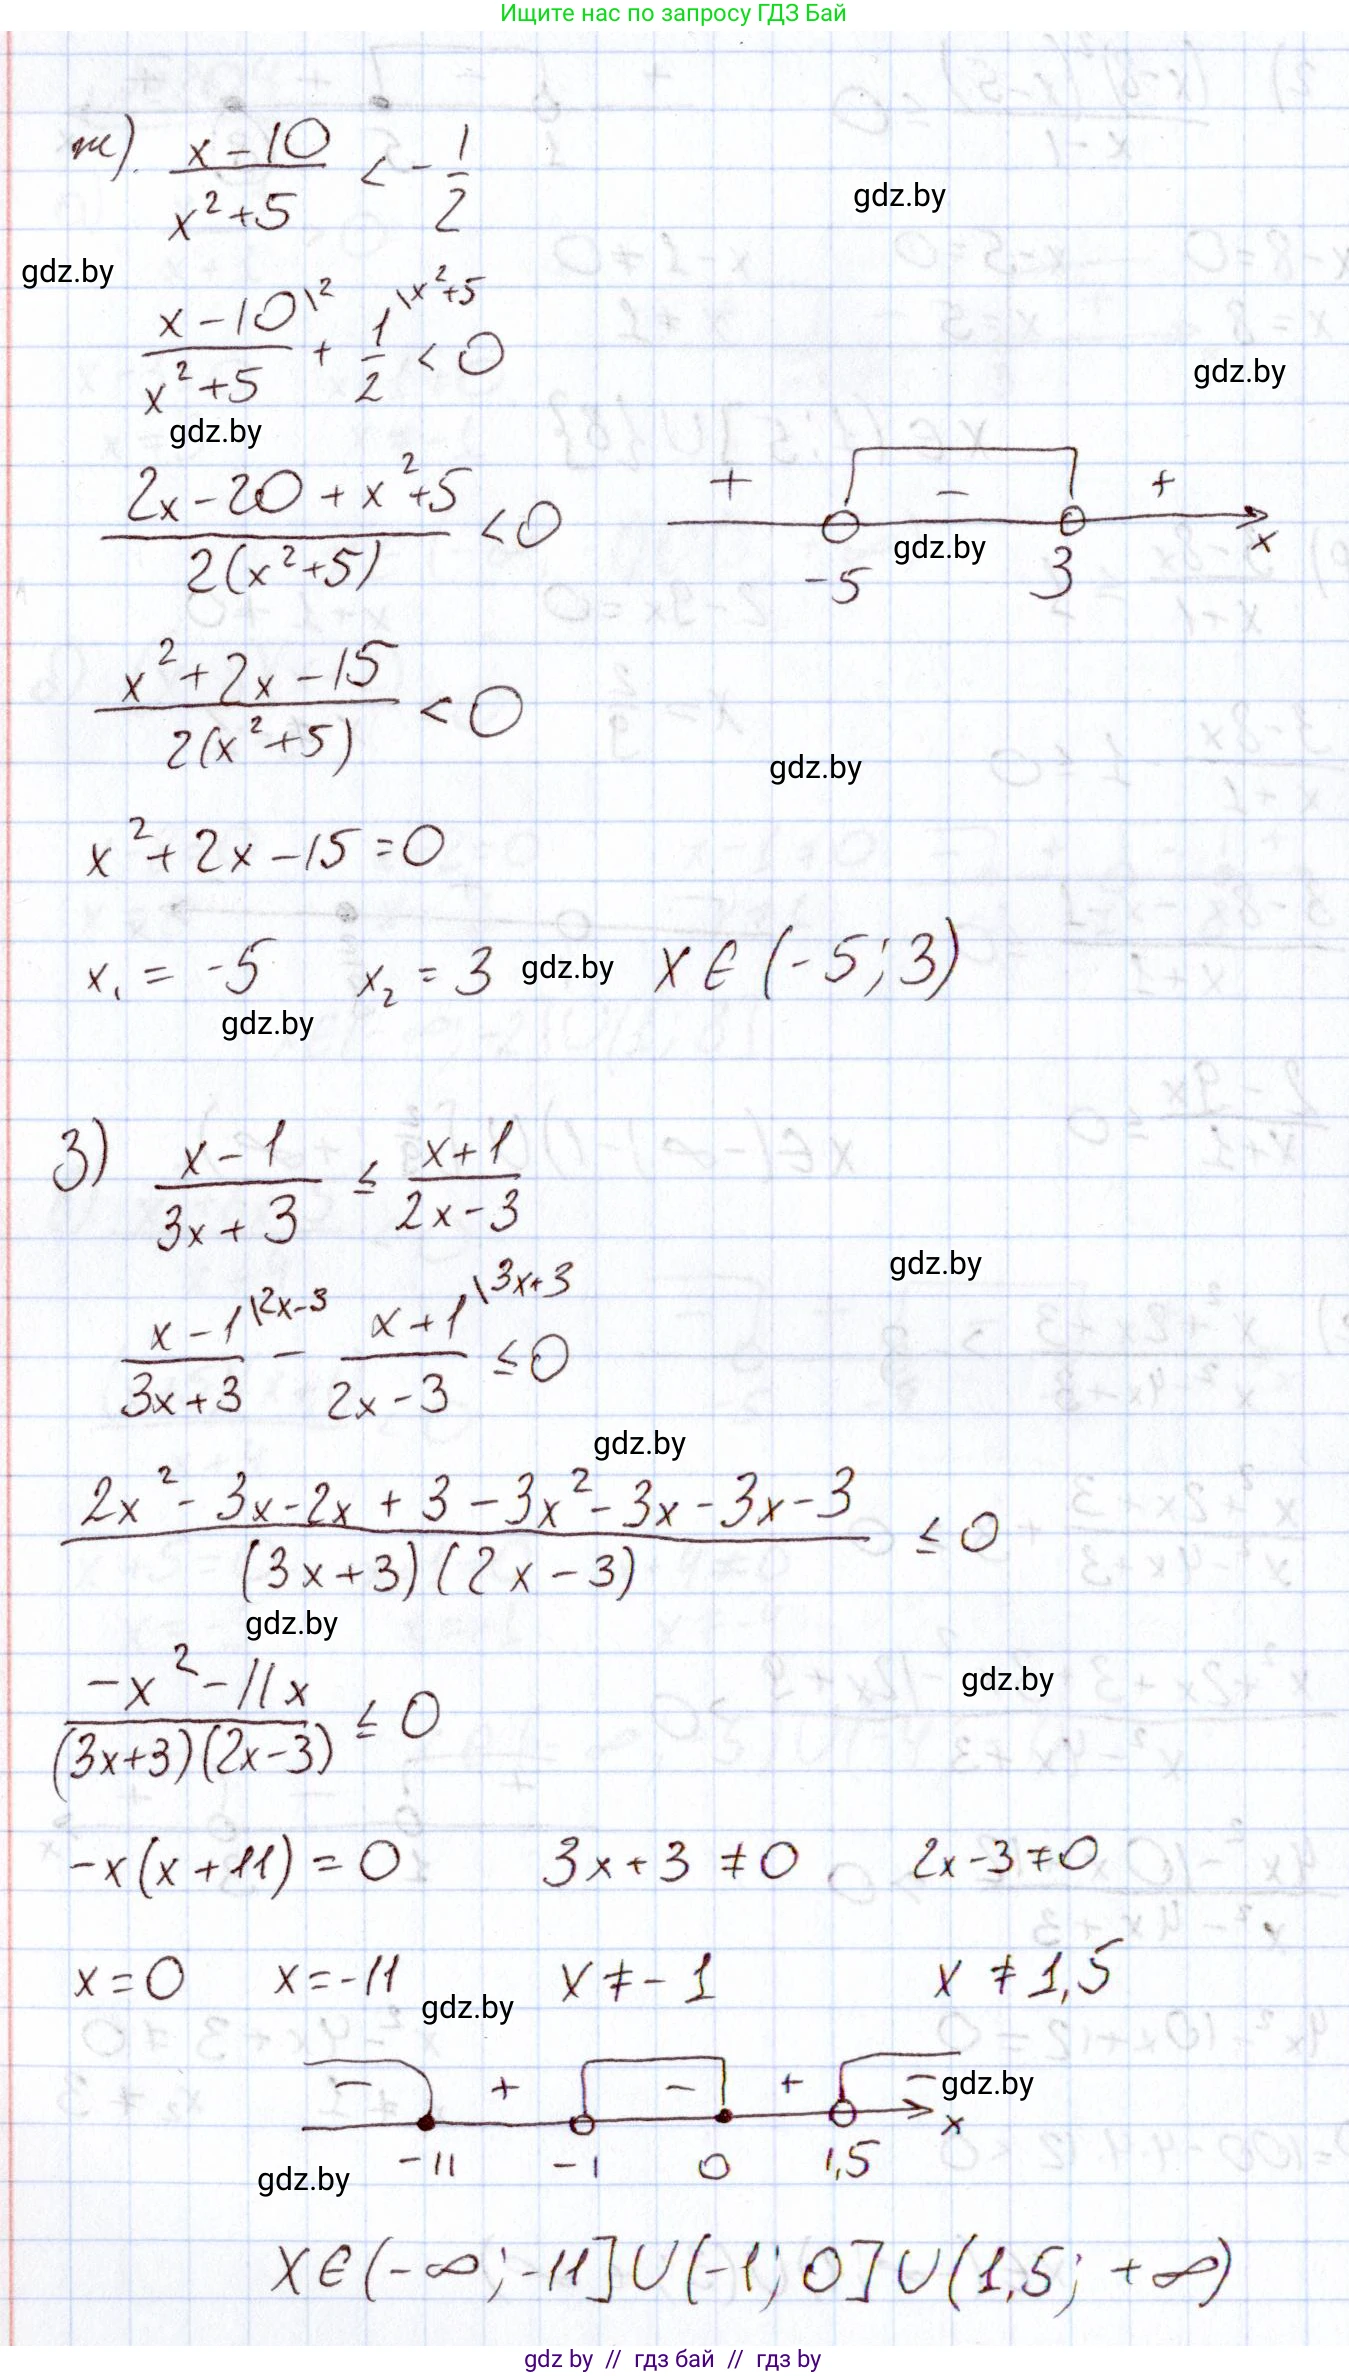 Ищите нас по запросу ГДЗ Бай
ж). x-10/x²+5 < -1/2
gdz.by
gdz.by
x-10\²/x²+5 + 1\^(x²+5)/2 < 0
gdz.by
gdz.by
2x-20+x²+5/2(x²+5) < 0
+ - + x
-5 3
gdz.by
x²+2x-15/2(x²+5) < 0
gdz.by
x²+2x-15=0
x₁ = -5 x₂ = 3 gdz.by x ∈ (-5; 3)
gdz.by
з) x-1/3x+3 ≤ x+1/2x-3
gdz.by
x-1\^(2x-3)/3x+3 - x+1\^(3x+3)/2x-3 ≤ 0
gdz.by
2x²-3x-2x+3-3x²-3x-3x-3/(3x+3)(2x-3) ≤ 0
gdz.by
-x²-11x/(3x+3)(2x-3) ≤ 0
gdz.by
-x(x+11)=0 3x+3≠0 2x-3≠0
x=0 x=-11 x≠-1 x≠1,5
gdz.by
- + - + - gdz.by
x
-11 -1 0 1,5
gdz.by
x∈(-∞;-11]∪(-1;0]∪(1,5; +∞)
gdz by // гдз бай // гдз by